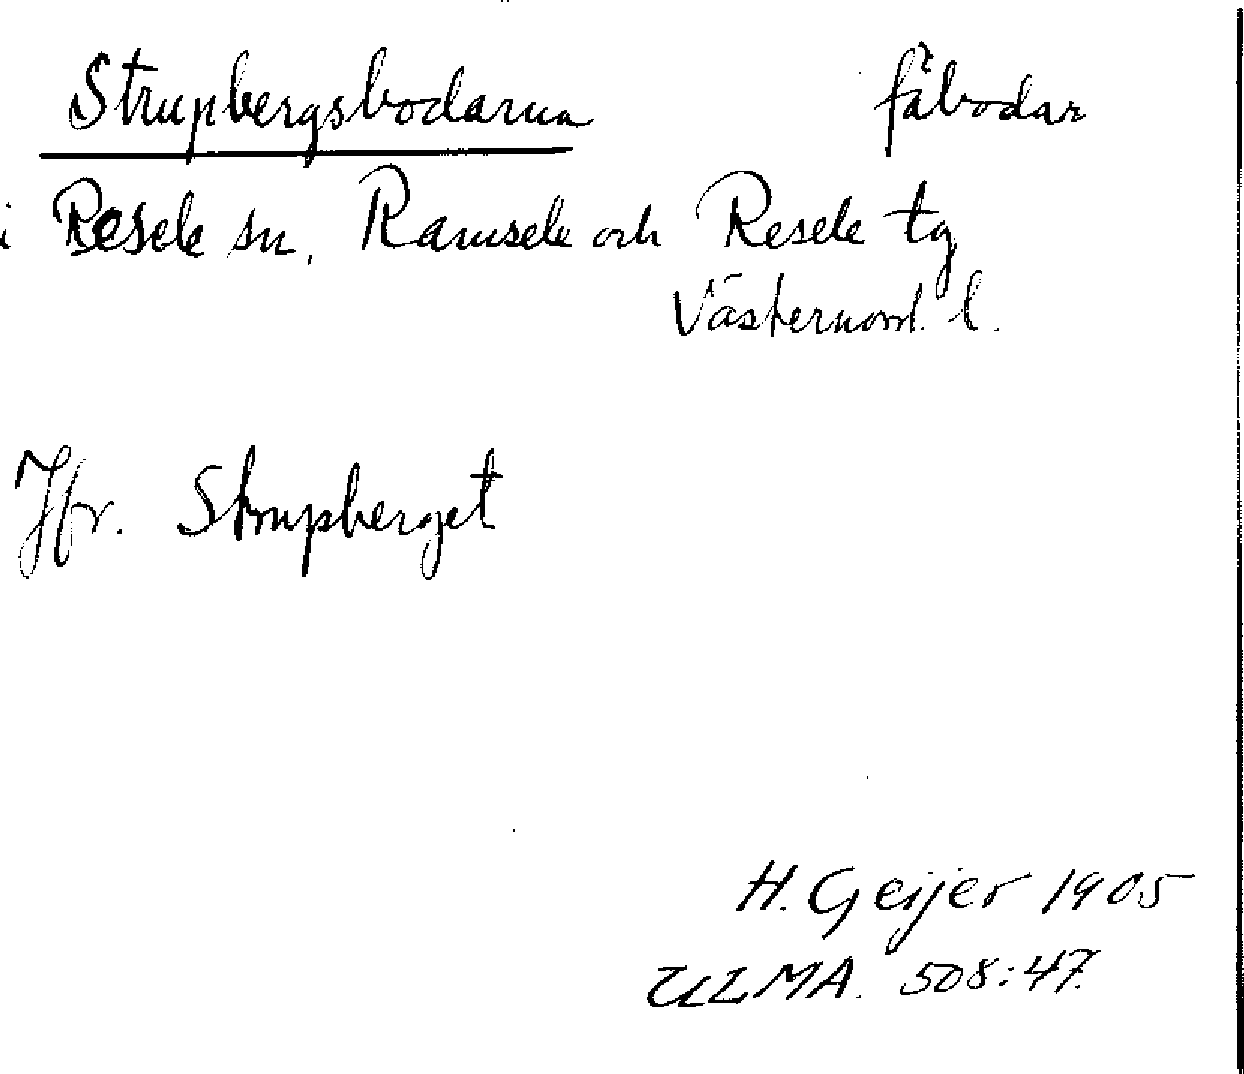 Strupbergsbodarna fäbodar
i Resele sn, Ramsele och Resele tg
Västernorrl. l.
Jfr. Strupberget
H. Geijer 1905
ULMA. 508:47.